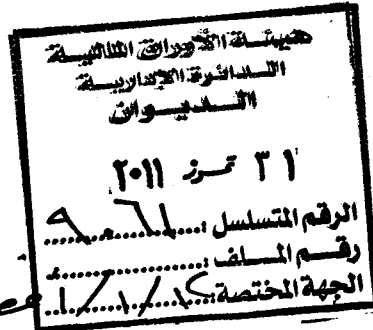 هيئة الأوراق المالية
الدائرة الإدارية
الديوان
٣١ تموز ٢٠١١
الرقم المتسلسل :
رقم الملف :
الجهة المختصة :